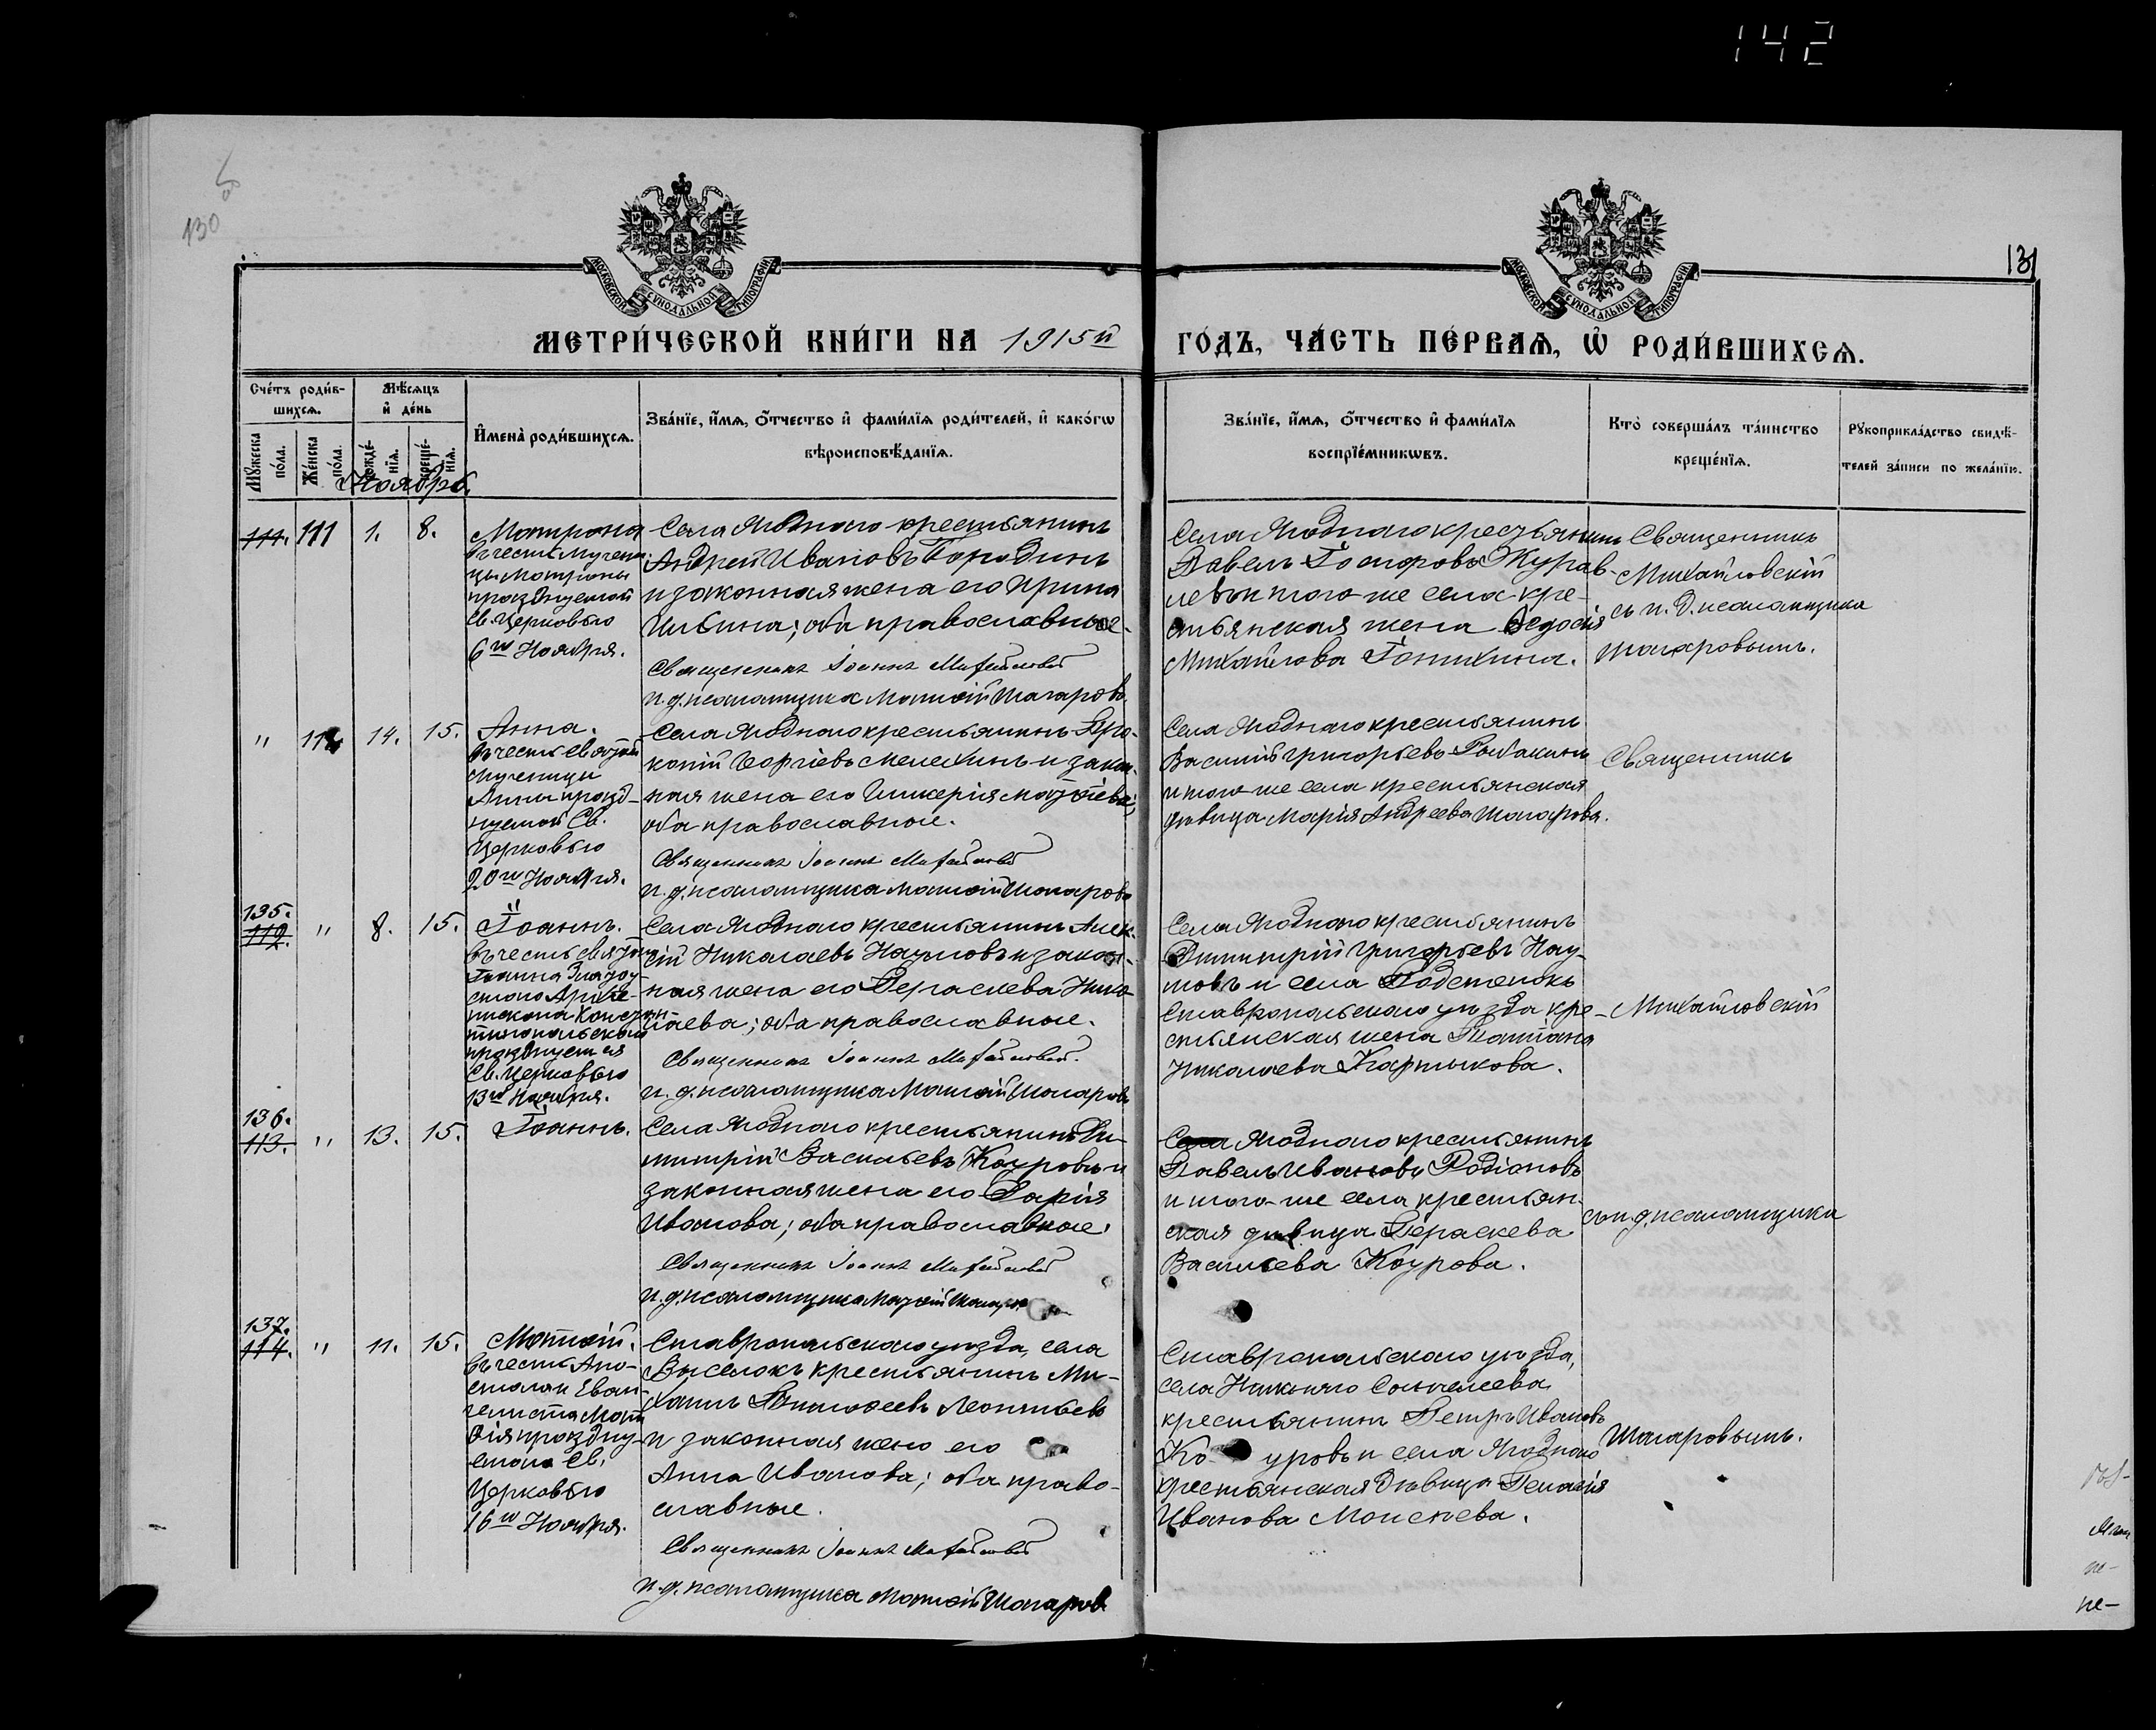 142
130
131
МОСКОВСКОЙ СУНОДАЛЬНОЙ ТИПОГРАФІИ
МОСКОВСКОЙ СУНОДАЛЬНОЙ ТИПОГРАФІИ
МЕТРИ́ЧЕСКОЙ КНИ́ГИ НА 1915й ГО́ДЪ, ЧА́СТЬ ПЕ́РВАѦ, Ѡ҆ РОДИ́ВШИХСѦ.
Сче́тъ роди́в-
шихсѧ.
Мѣ́сѧцъ
и҆ де́нь
Мꙋжеска по́ла.
Же́нска по́ла.
Рожде́-нїѧ.
Креще́-нїѧ.
И҆мена̀ роди́вшихсѧ.
Зва́нїе, и҆́мѧ, ѻ҆́тчество и҆ фами́лїѧ роди́телей, и҆ како́гѡ
вѣроисповѣ́данїѧ.
Зва́нїе, и҆́мѧ, ѻ҆́тчество и҆ фами́лїѧ
воспрїе́мникѡвъ.
Кто̀ соверша́лъ та́инство
креще́нїѧ.
Рꙋкоприкла́дство свидѣ́-
телей за́писи по жела́нїю.
Ноябрь
111. 111 1. 8.
Матрона
въ честь мучени-
цы Матроны
празднуемой
Св. Церковью
6го Ноября.
Села Ягоднаго крестьянинъ
Андрей Ивановъ Бородинъ
и законная жена его Ирина
Ильина; оба православные.
Священникъ Іоаннъ Михайловскій
и. д. псаломщика Матѳій Шагаровъ
Села Ягоднаго крестьянинъ
Павелъ Журав-
левъ и того-же села кре-
стьянская жена Ѳедосія
Михайлова
Священникъ
Михайловскій
съ и. д. псаломщика
Шагаровымъ.
" 112 14. 15.
Анна.
въ честь святой
мученицы
Анны празд-
нуемой Св.
Церковью
20го Ноября.
Села Ягоднаго крестьянинъ Про-
копій Георгіевъ Мелехинъ и закон-
ная жена его Гликерія Матѳіева;
оба православные.
Священникъ Іоаннъ Михайловскій
и. д. псаломщика Матѳій Шагаровъ
Села Ягоднаго крестьянинъ
Василій Григорьевъ Рыбакинъ
и того-же села крестьянская
дѣвица Марія Андреева Шагарова.
Священникъ
135.
112. " 8. 15.
Іоаннъ.
въ честь святого
Іоанна Златоу-
стаго Архіе-
пископа Констан-
тинопольскаго
празднуемая
Св. Церковью
13го Ноября.
Села Ягоднаго крестьянинъ Алек-
сій Николаевъ Наумовъ и закон-
ная жена его Пераскева Нико-
лаева; оба православные.
Священникъ Іоаннъ Михайловскій.
и. д. псаломщика Матѳій Шагаровъ
Села Ягоднаго крестьянинъ
Димитрій Григорьевъ Нау-
мовъ и села Подстепокъ
Ставропольскаго уѣзда кре-
стьянская жена Татіана
Николаева Карпыкова.
Михайловскій
136.
113. " 13. 15.
Іоаннъ.
Села Ягоднаго крестьянинъ Ди-
митрій Васильевъ Кауровъ и
законная жена его Дарія
Иванова; оба православные.
Священникъ Іоаннъ Михайловскій
и. д. псаломщика Матѳій Шагаровъ
Села Ягоднаго крестьянинъ
Павелъ Ивановъ Родіоновъ
и того-же села крестьян-
ская дѣвица Пераскева
Васильева Каурова.
съ и. д. псаломщика
137.
114. " 11. 15.
Матѳій.
въ честь Апо-
стола и Еван-
гелиста Мат-
ѳія праздну-
емаго Св.
Церковью
16го Ноября.
Ставропольскаго уѣзда, села
Выселокъ крестьянинъ Ми-
хаилъ Тимоѳеевъ Леонтьевъ
и законная жена его
Анна Иванова; оба право-
славные.
Священникъ Іоаннъ Михайловскій
и. д. псаломщика Матѳій Шагаровъ
Ставропольскаго уѣзда,
села Нижняго Санчелеева
крестьянинъ Петръ Ивановъ
Ко уровъ и села Ягоднаго
крестьянская дѣвица Пелагія
Иванова Моисеева.
Шагаровымъ.